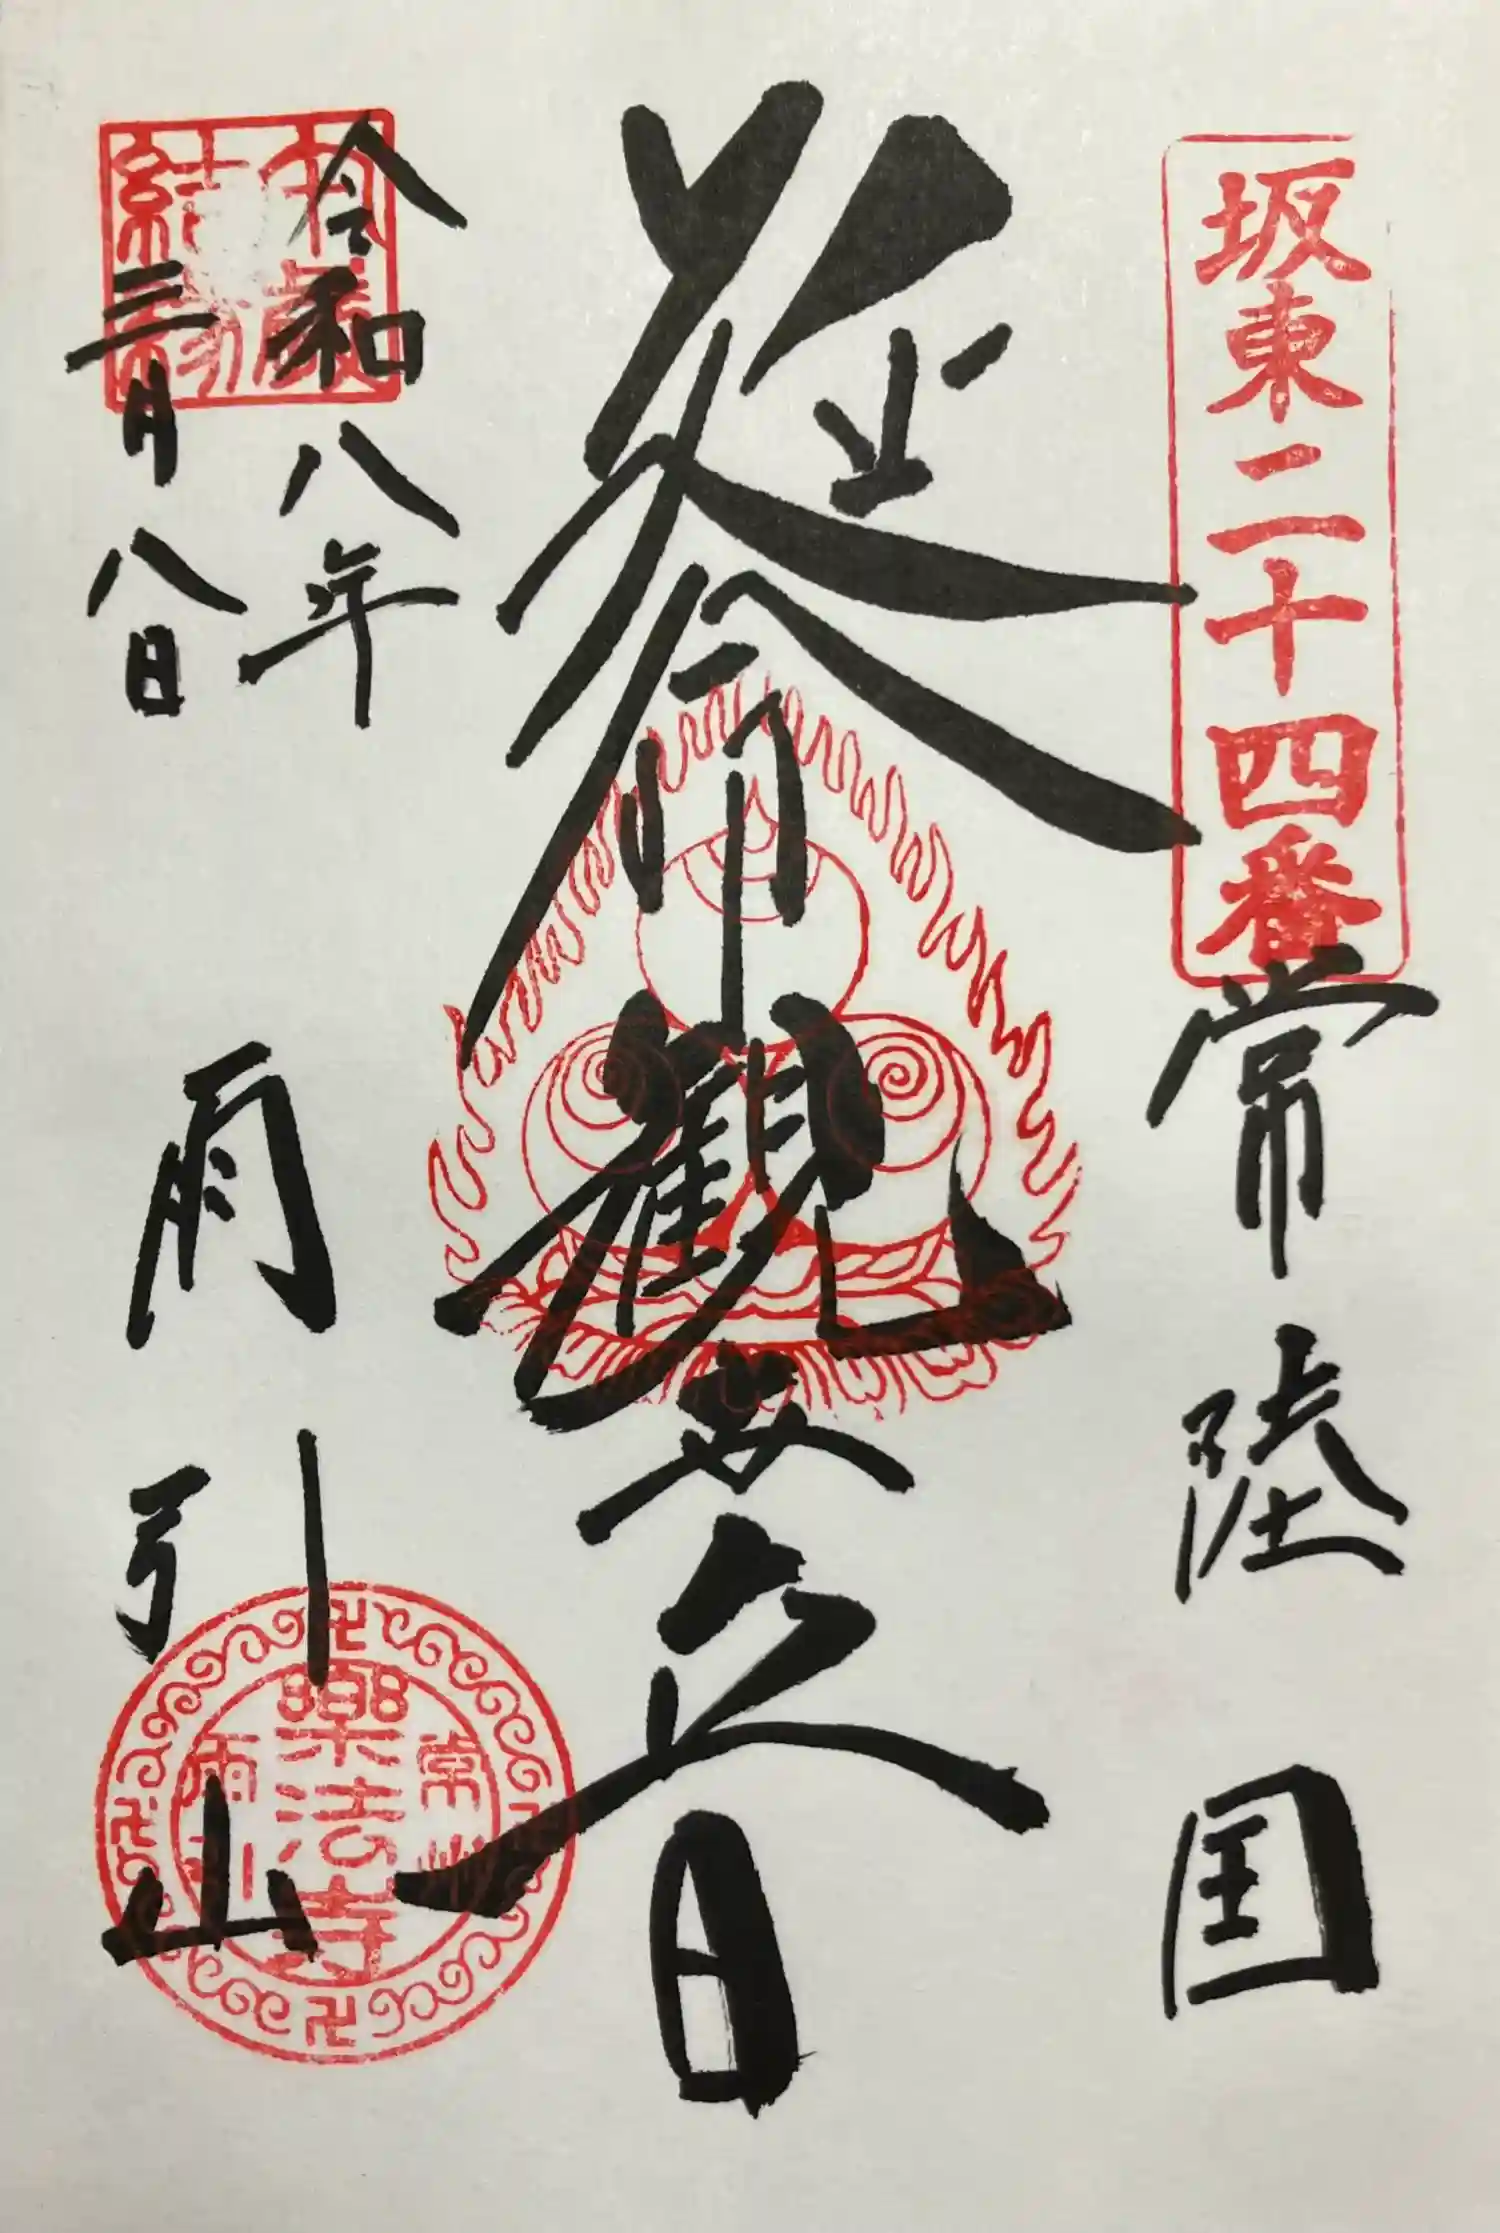 坂東二十四番
常陸国
延命観世音
令和八年
三月八日
雨引山
常州
樂法寺
雨引山